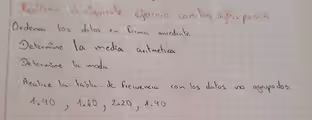 Realizar el siguiente ejercicio con los siguientes pasos
Ordenar los datos en forma ascendente
Determine la media aritmetica
Determine la moda
Realice la tabla de frecuencia con los datos no agrupados
1.40, 1.40, 2.20, 1.40